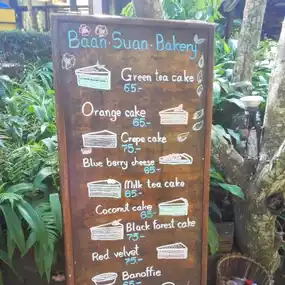 Baan • Suan • Bakery
Green tea cake
65.-
Orange cake
65.-
Crepe cake
75.-
Blue berry cheese
85.-
Milk tea cake
65.-
Coconut cake
65.-
Black forest cake
75.-
Red velvet
75.-
Banoffie